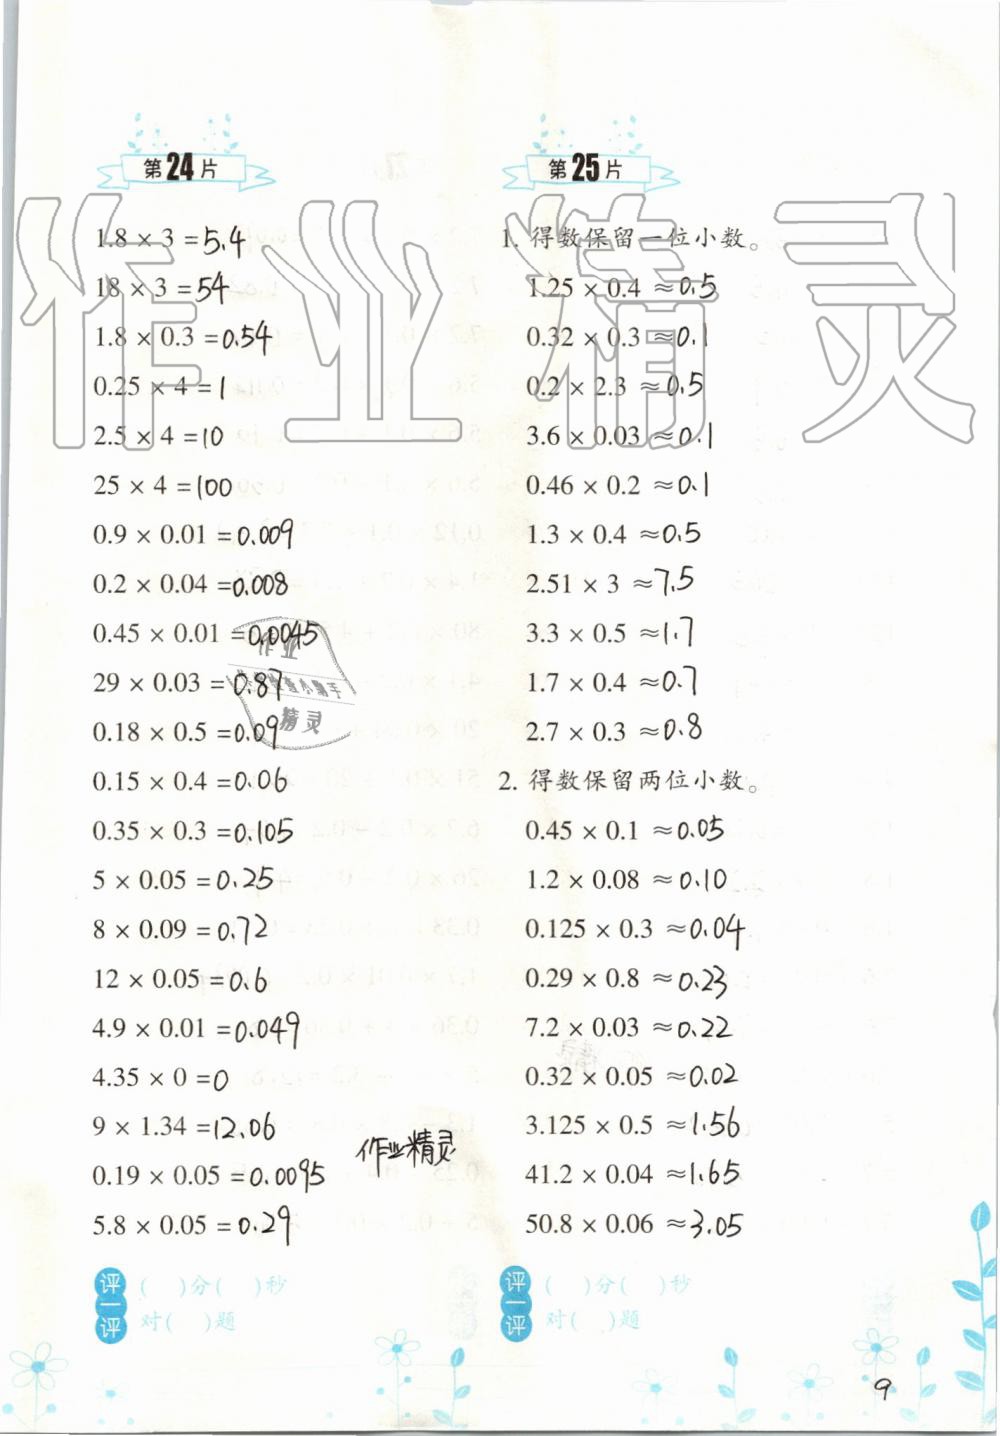 第24片
1.8 × 3 = 5.4
18 × 3 = 54
1.8 × 0.3 = 0.54
0.25 × 4 = 1
2.5 × 4 = 10
25 × 4 = 100
0.9 × 0.01 = 0.009
0.2 × 0.04 = 0.008
0.45 × 0.01 = 0.0045
29 × 0.03 = 0.87
0.18 × 0.5 = 0.09
0.15 × 0.4 = 0.06
0.35 × 0.3 = 0.105
5 × 0.05 = 0.25
8 × 0.09 = 0.72
12 × 0.05 = 0.6
4.9 × 0.01 = 0.049
4.35 × 0 = 0
9 × 1.34 = 12.06
0.19 × 0.05 = 0.0095
5.8 × 0.05 = 0.29
评一评
( )分( )秒
对( )题
第25片
1. 得数保留一位小数。
1.25 × 0.4 ≈ 0.5
0.32 × 0.3 ≈ 0.1
0.2 × 2.3 ≈ 0.5
3.6 × 0.03 ≈ 0.1
0.46 × 0.2 ≈ 0.1
1.3 × 0.4 ≈ 0.5
2.51 × 3 ≈ 7.5
3.3 × 0.5 ≈ 1.7
1.7 × 0.4 ≈ 0.7
2.7 × 0.3 ≈ 0.8
2. 得数保留两位小数。
0.45 × 0.1 ≈ 0.05
1.2 × 0.08 ≈ 0.10
0.125 × 0.3 ≈ 0.04
0.29 × 0.8 ≈ 0.23
7.2 × 0.03 ≈ 0.22
0.32 × 0.05 ≈ 0.02
3.125 × 0.5 ≈ 1.56
41.2 × 0.04 ≈ 1.65
50.8 × 0.06 ≈ 3.05
评一评
( )分( )秒
对( )题
作业精灵
作业精灵
作业
精灵
9